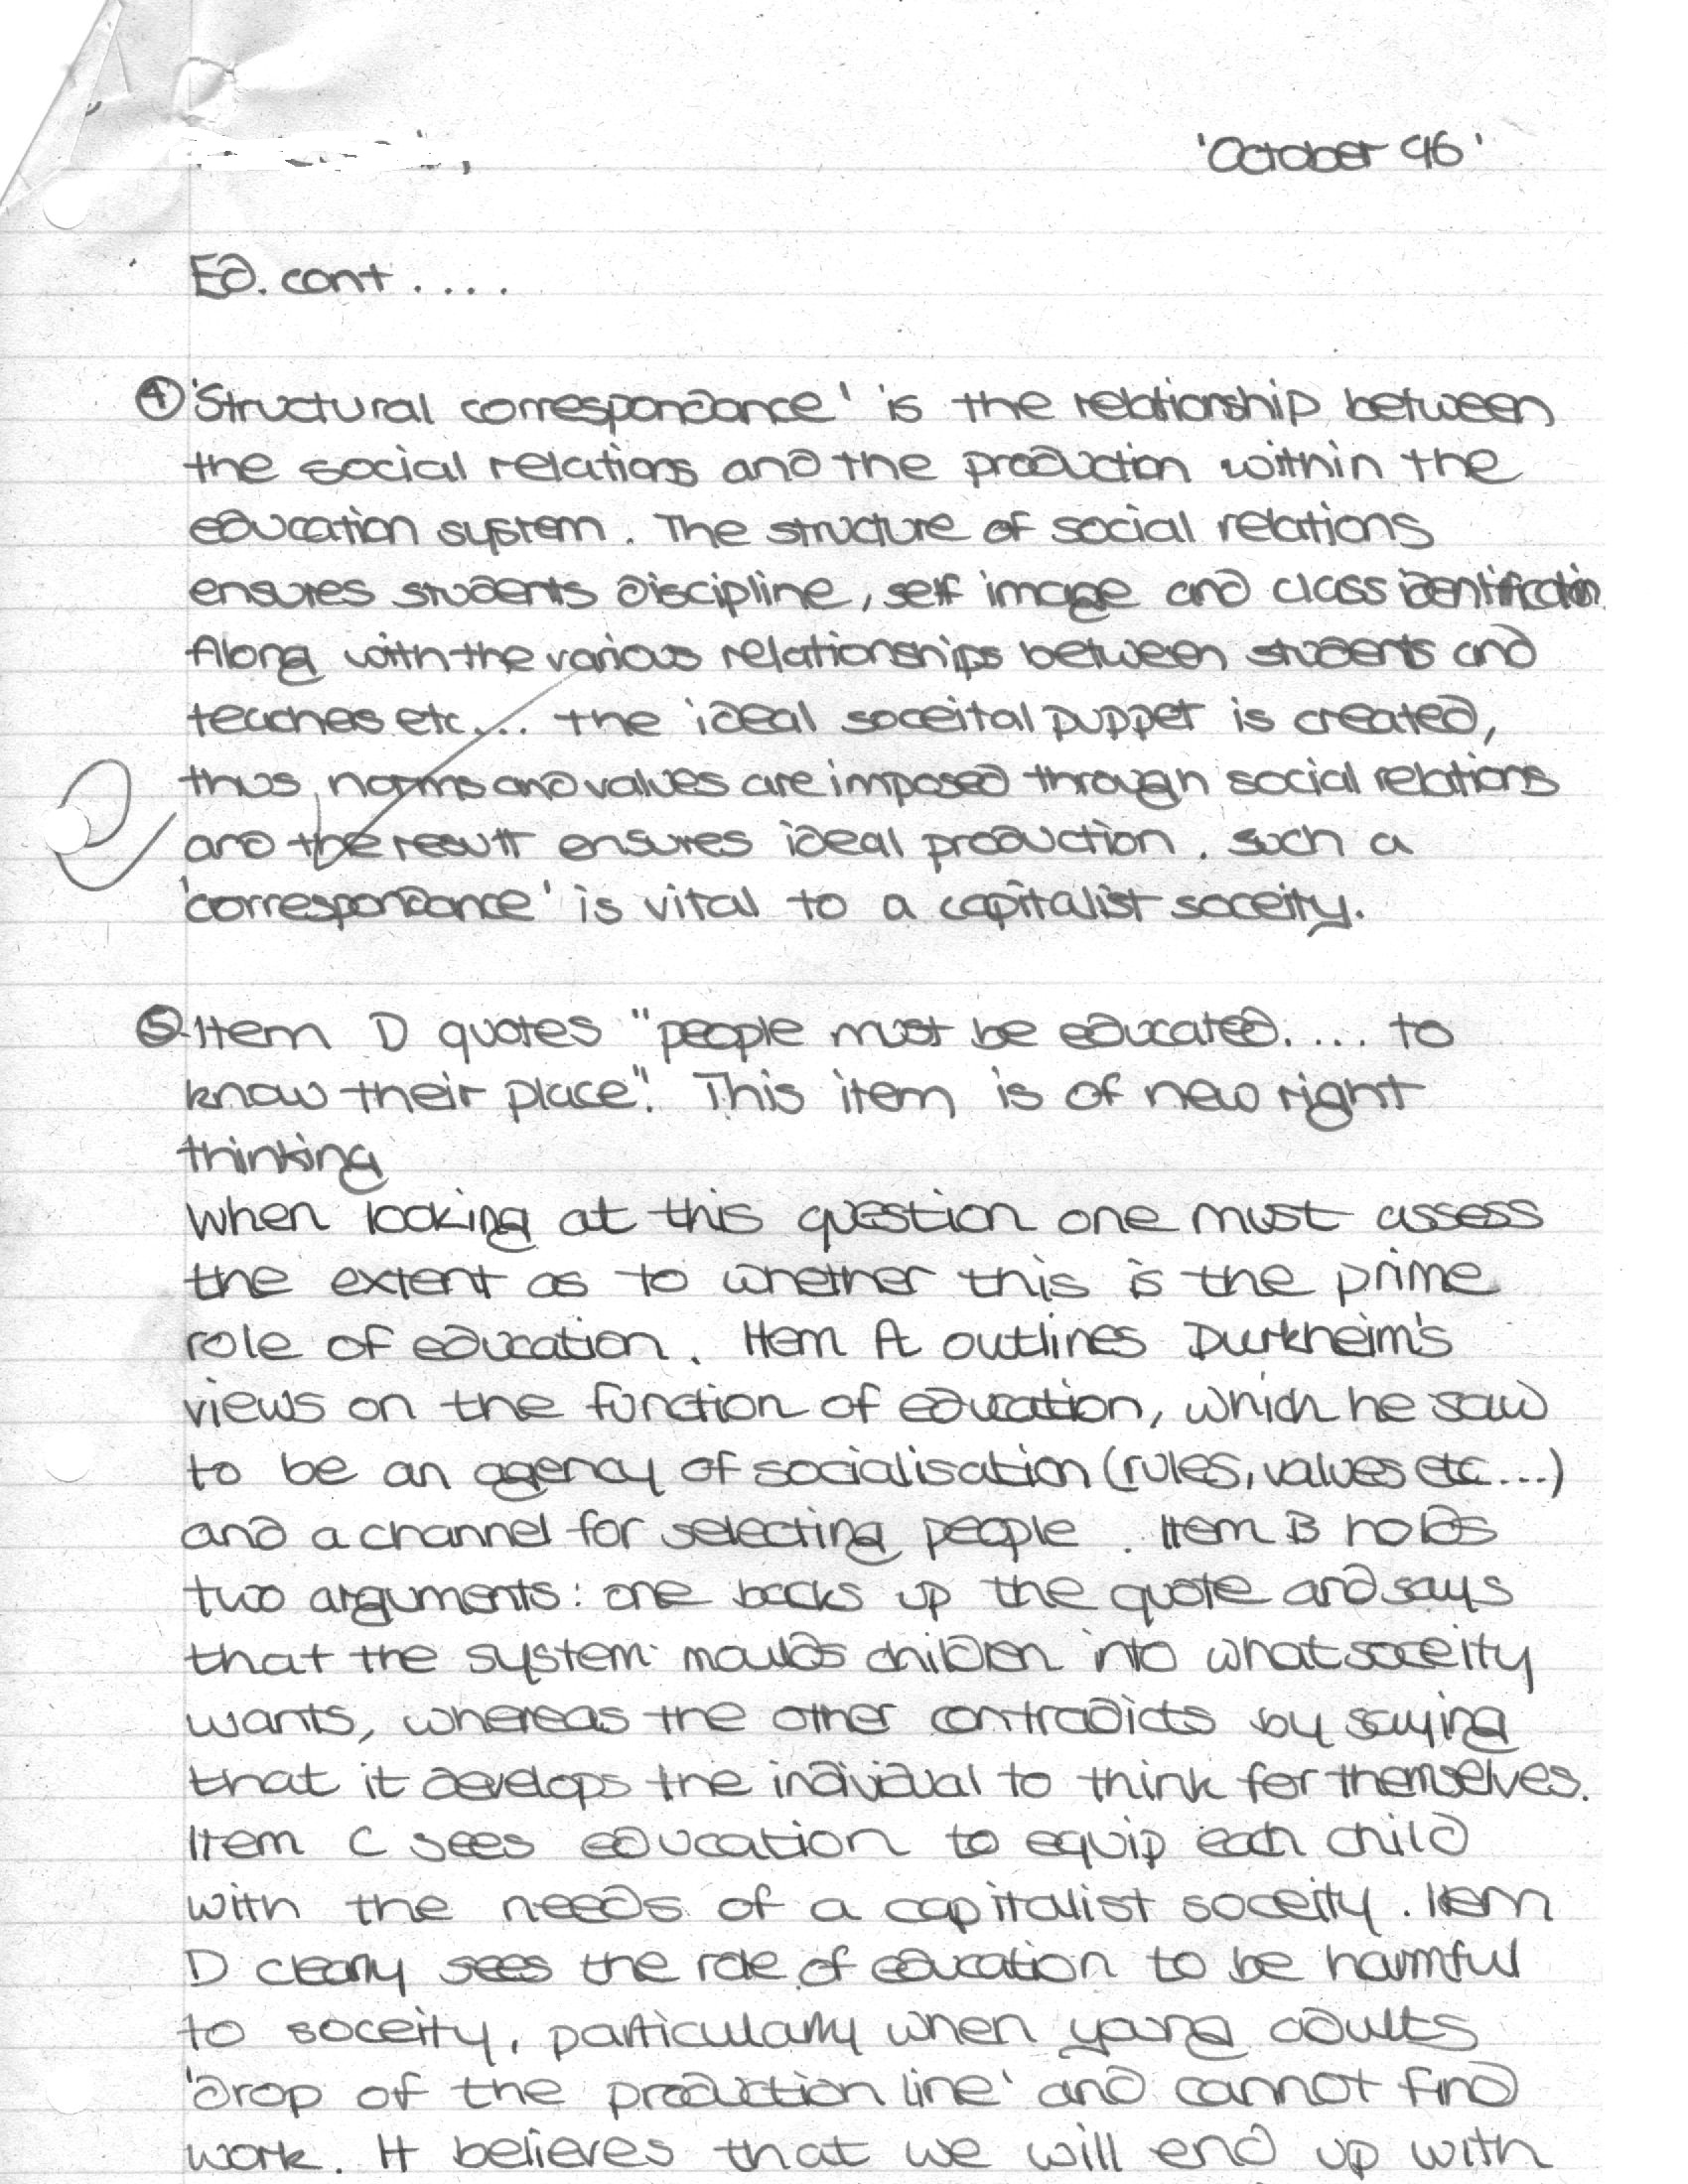 'October 96'
Ed. cont....
④ 'Structural correspondance' is the relationship between
the social relations and the production within the
education system. The structure of social relations
ensures students discipline, self image and class identification.
Along with the various relationships between students and
teaches etc... the ideal soceital puppet is created,
thus norms and values are imposed through social relations
and the result ensures ideal production. Such a
'correspondance' is vital to a capitalist soceity.
⑤ Item D quotes "people must be educated.... to
know their place". This item is of new right
thinking
When looking at this question one must assess
the extent as to whether this is the prime
role of education. Item A outlines Durkheim's
views on the function of education, which he saw
to be an agency of socialisation (rules, values etc...)
and a channel for selecting people. Item B holds
two arguments: one backs up the quote and says
that the system moulds children into what soceity
wants, whereas the other contradicts by saying
that it develops the individual to think for themselves.
Item C sees education to equip each child
with the needs of a capitalist soceity. Item
D clearly sees the role of education to be harmful
to soceity, particularly when young adults
'drop of the production line' and cannot find
work. It believes that we will end up with